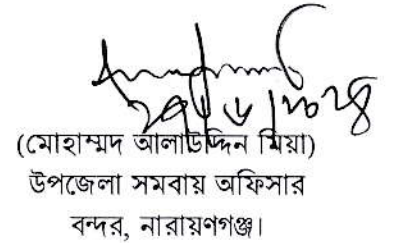 (মোহাম্মদ আলাউদ্দিন মিয়া)
উপজেলা সমবায় অফিসার
বন্দর, নারায়ণগঞ্জ।